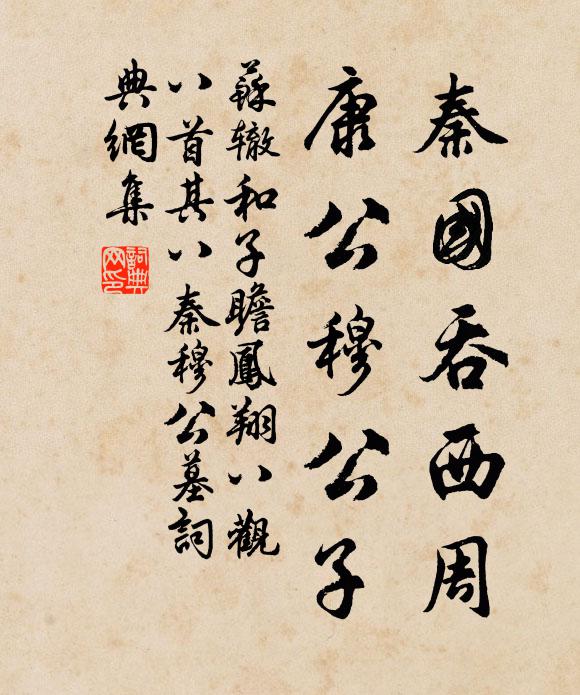 秦國吞西周
康公穆公子
蘇轍和子瞻鳳翔八觀
八首其八秦穆公墓詞
典網集
詞典網印